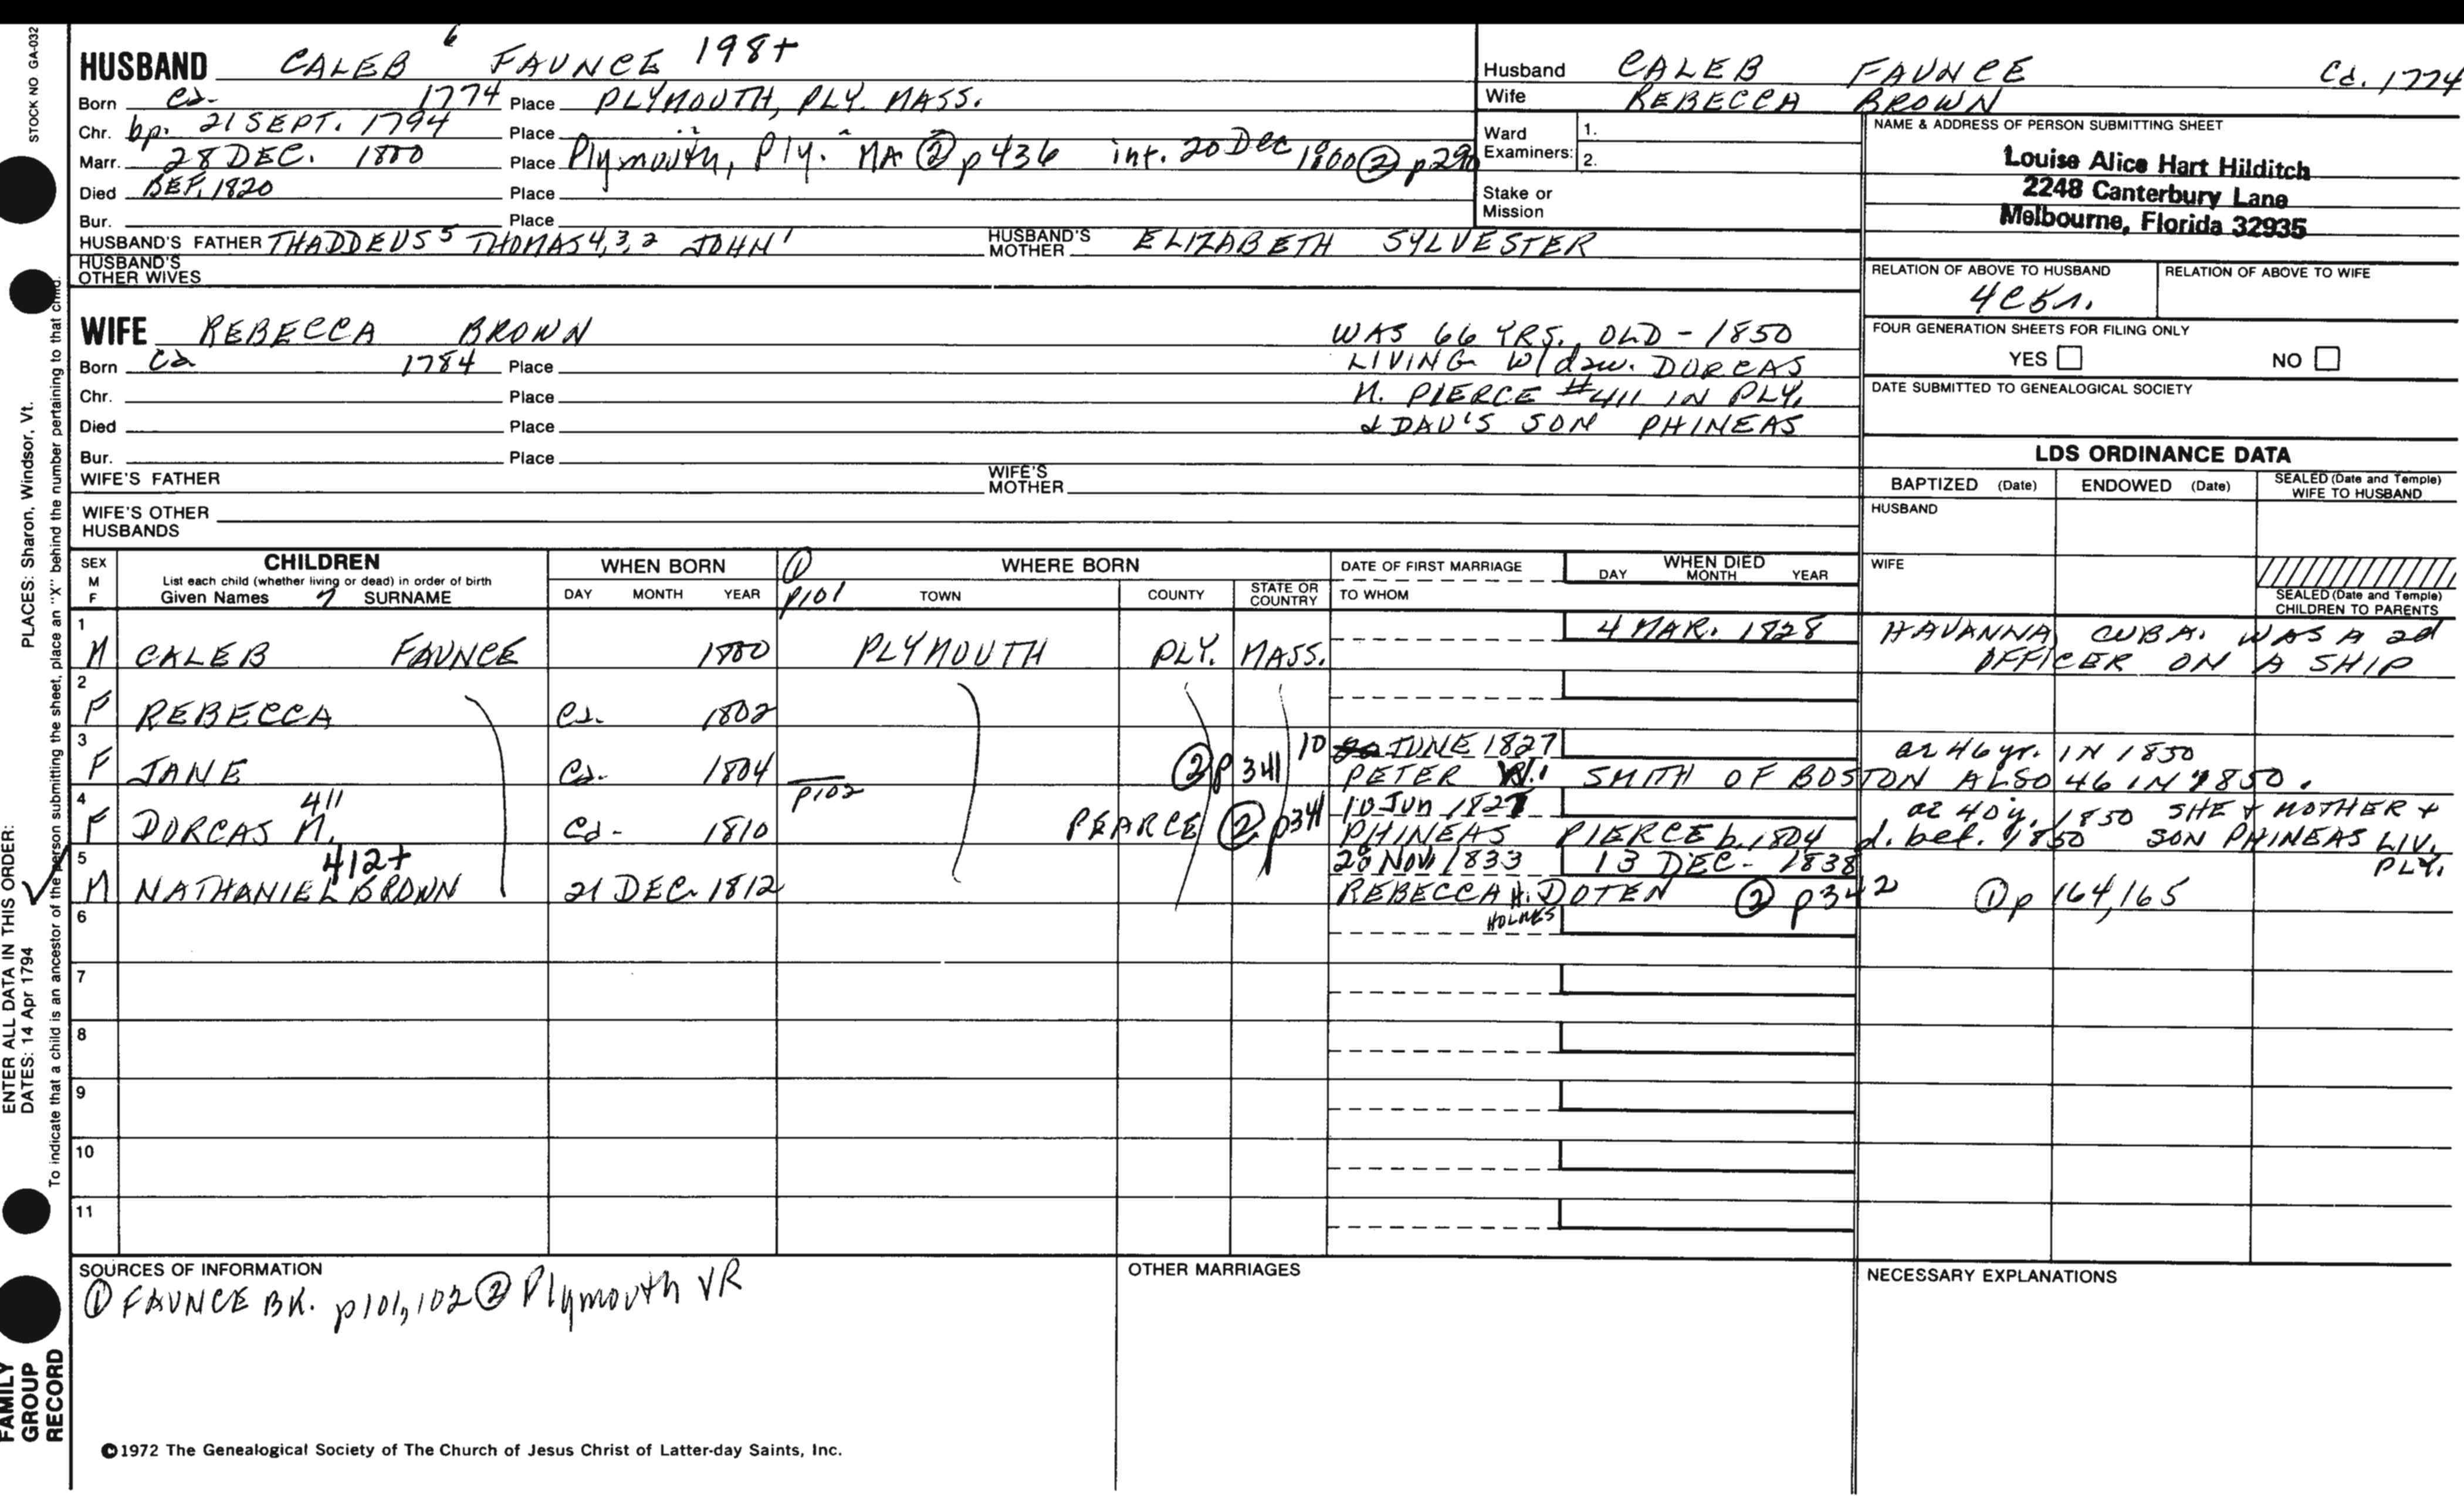 STOCK NO GA-032
HUSBAND CALEB 6 FAUNCE 198+
Born ca. 1774 Place PLYMOUTH, PLY. MASS.
Chr. bp. 21 SEPT. 1794 Place " " "
Marr. 28 DEC. 1800 Place Plymouth, Ply. MA ② p436 int. 20 Dec 1800 ② p290
Died BEF. 1820 Place
Bur. Place
HUSBAND'S FATHER THADDEUS 5 THOMAS 4,3,2 JOHN 1 HUSBAND'S MOTHER ELIZABETH SYLVESTER
HUSBAND'S OTHER WIVES
Husband CALEB FAUNCE Ca. 1774
Wife REBECCA BROWN
Ward Examiners: 1. 2.
Stake or Mission
NAME & ADDRESS OF PERSON SUBMITTING SHEET
Louise Alice Hart Hilditch
2248 Canterbury Lane
Melbourne, Florida 32935
RELATION OF ABOVE TO HUSBAND RELATION OF ABOVE TO WIFE
4C5r.
FOUR GENERATION SHEETS FOR FILING ONLY
YES NO
DATE SUBMITTED TO GENEALOGICAL SOCIETY
WIFE REBECCA BROWN WAS 66 YRS. OLD - 1850
Born Ca 1784 Place LIVING w/dau. DORCAS
Chr. Place M. PIERCE #411 IN PLY.
Died Place & DAU'S SON PHINEAS
Bur. Place
WIFE'S FATHER WIFE'S MOTHER
WIFE'S OTHER HUSBANDS
LDS ORDINANCE DATA
BAPTIZED (Date) ENDOWED (Date) SEALED (Date and Temple) WIFE TO HUSBAND
HUSBAND
WIFE
SEALED (Date and Temple) CHILDREN TO PARENTS
SEX M F CHILDREN List each child (whether living or dead) in order of birth Given Names 7 SURNAME
WHEN BORN DAY MONTH YEAR
① p101 WHERE BORN TOWN COUNTY STATE OR COUNTRY
DATE OF FIRST MARRIAGE TO WHOM
WHEN DIED DAY MONTH YEAR
1 4 MAR. 1828 HAVANNA, CUBA. WAS A 2d
M CALEB FAUNCE 1800 PLYMOUTH PLY. MASS. OFFICER ON A SHIP
2
F REBECCA Ca. 1802
3 10 JUNE 1827 ae 46 yr. IN 1850
F JANE Ca. 1804 ② p 341 PETER W. SMITH OF BOSTON ALSO 46 IN 1850.
4 411 p102 10 Jun 1827 ae 40 y. 1850 SHE & MOTHER +
F DORCAS M. Ca - 1810 PEARCE ② p341 PHINEAS PIERCE b. 1804 d. bef. 1850 SON PHINEAS LIV. PLY.
5 412+ 28 Nov 1833 13 DEC - 1838
M NATHANIEL BROWN 21 DEC. 1812 REBECCA H. DOTEN ② p342 ① p 164,165
HOLMES
6
7
8
9
10
11
SOURCES OF INFORMATION
① FAUNCE BK. p101,102 ② Plymouth VR
OTHER MARRIAGES
NECESSARY EXPLANATIONS
©1972 The Genealogical Society of The Church of Jesus Christ of Latter-day Saints, Inc.
ENTER ALL DATA IN THIS ORDER:
DATES: 14 Apr 1794 PLACES: Sharon, Windsor, Vt.
To indicate that a child is an ancestor of the person submitting the sheet, place an "X" behind the number pertaining to that child.
FAMILY
GROUP
RECORD